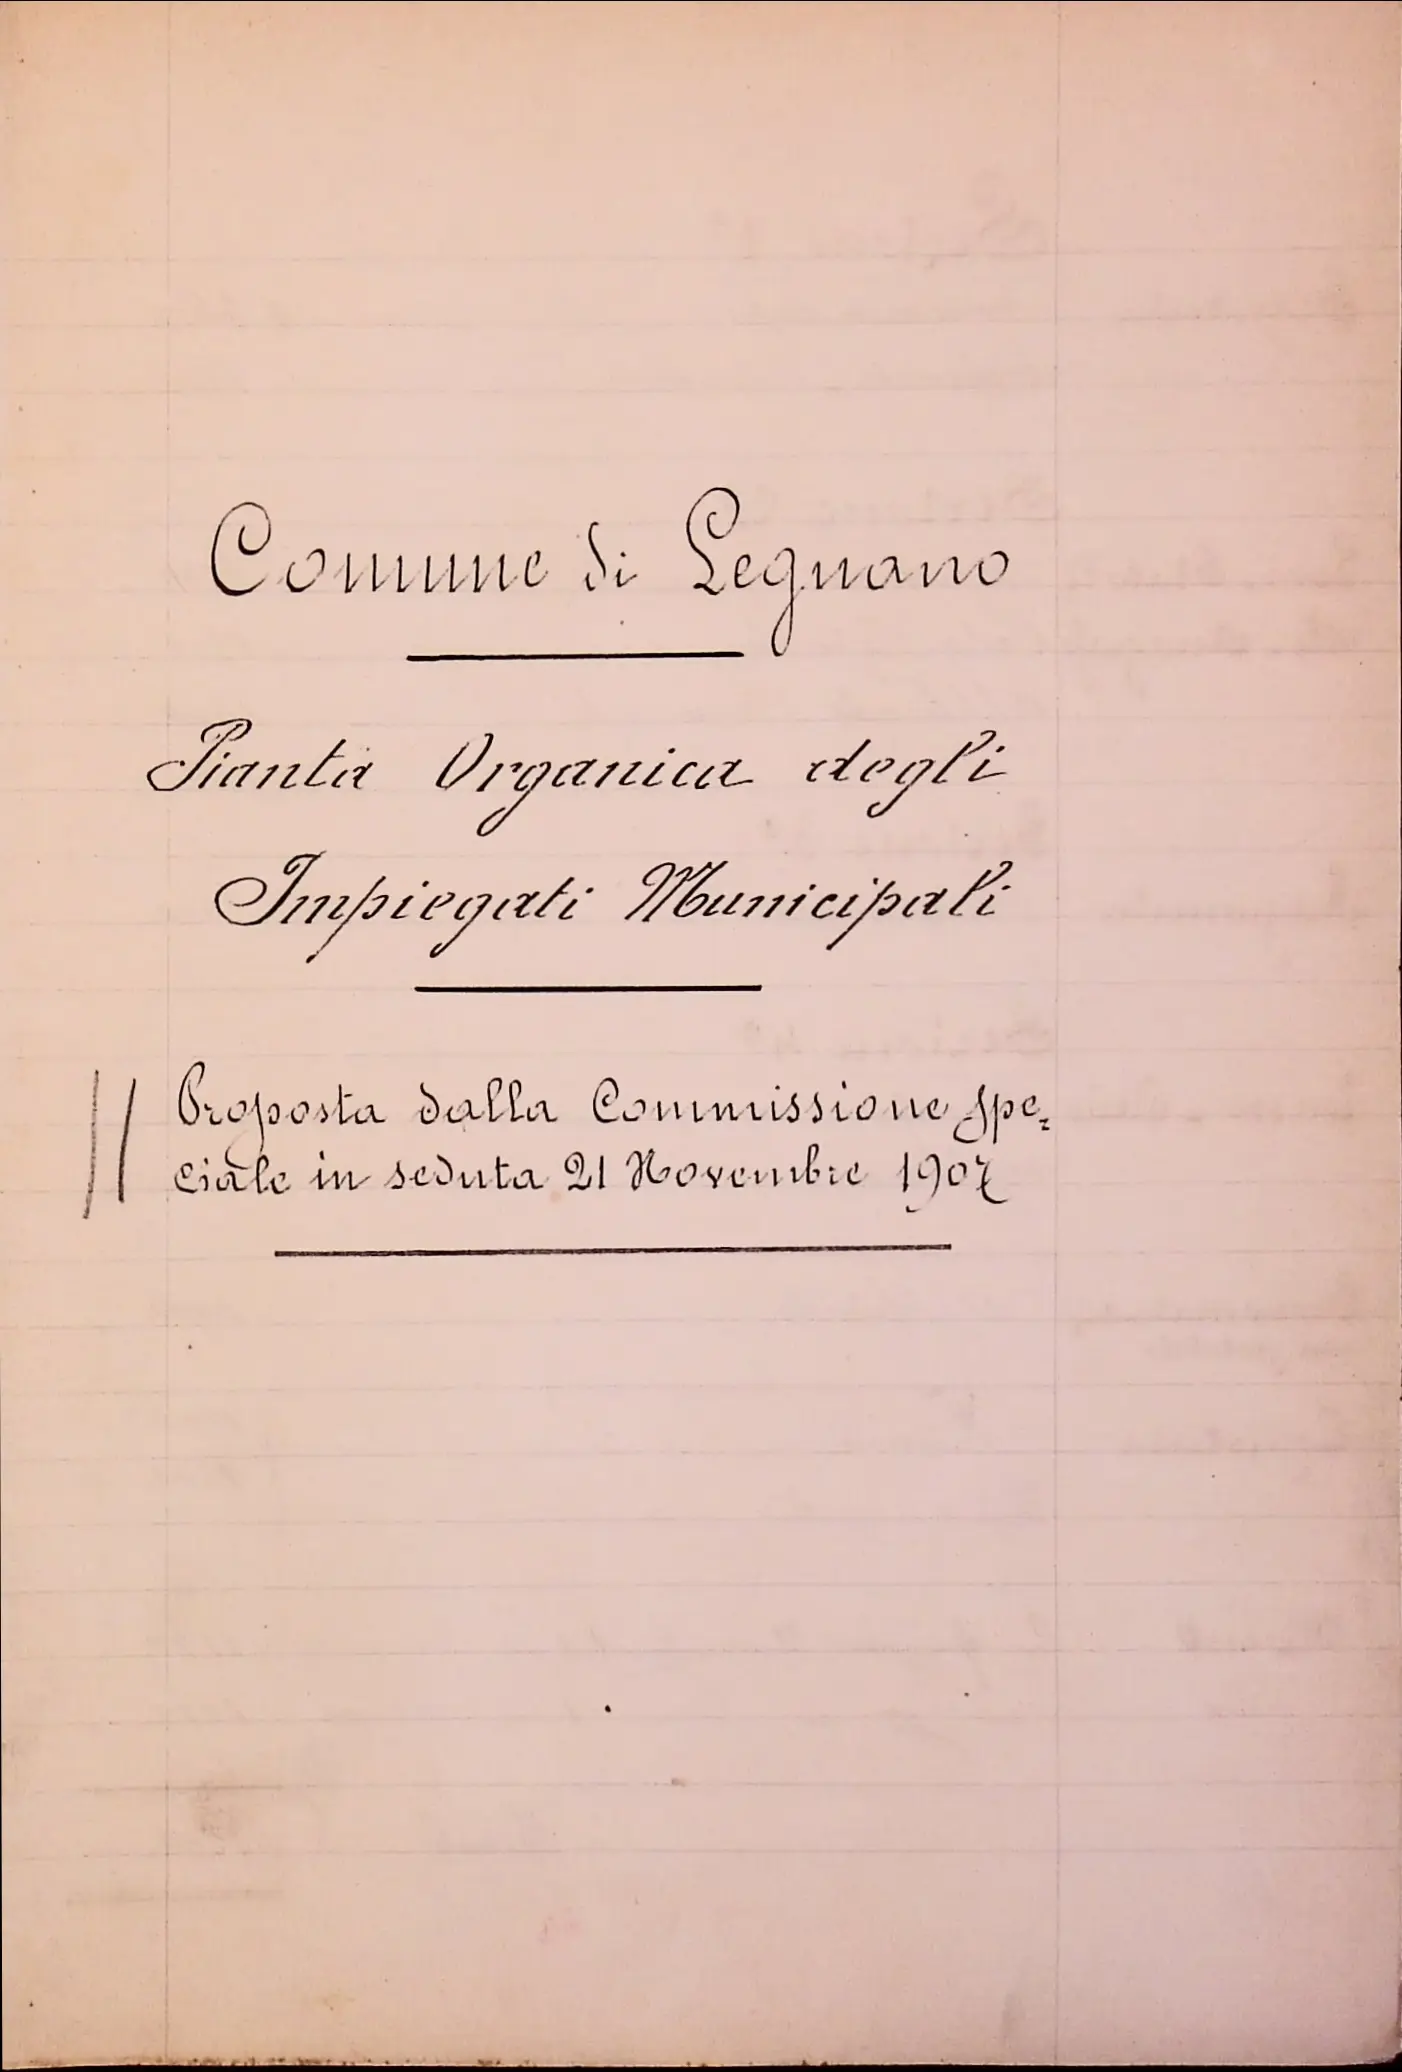 Comune di Legnano
Pianta Organica degli
Impiegati Municipali
Proposta dalla Commissione spe=
ciale in seduta 21 Novembre 1907